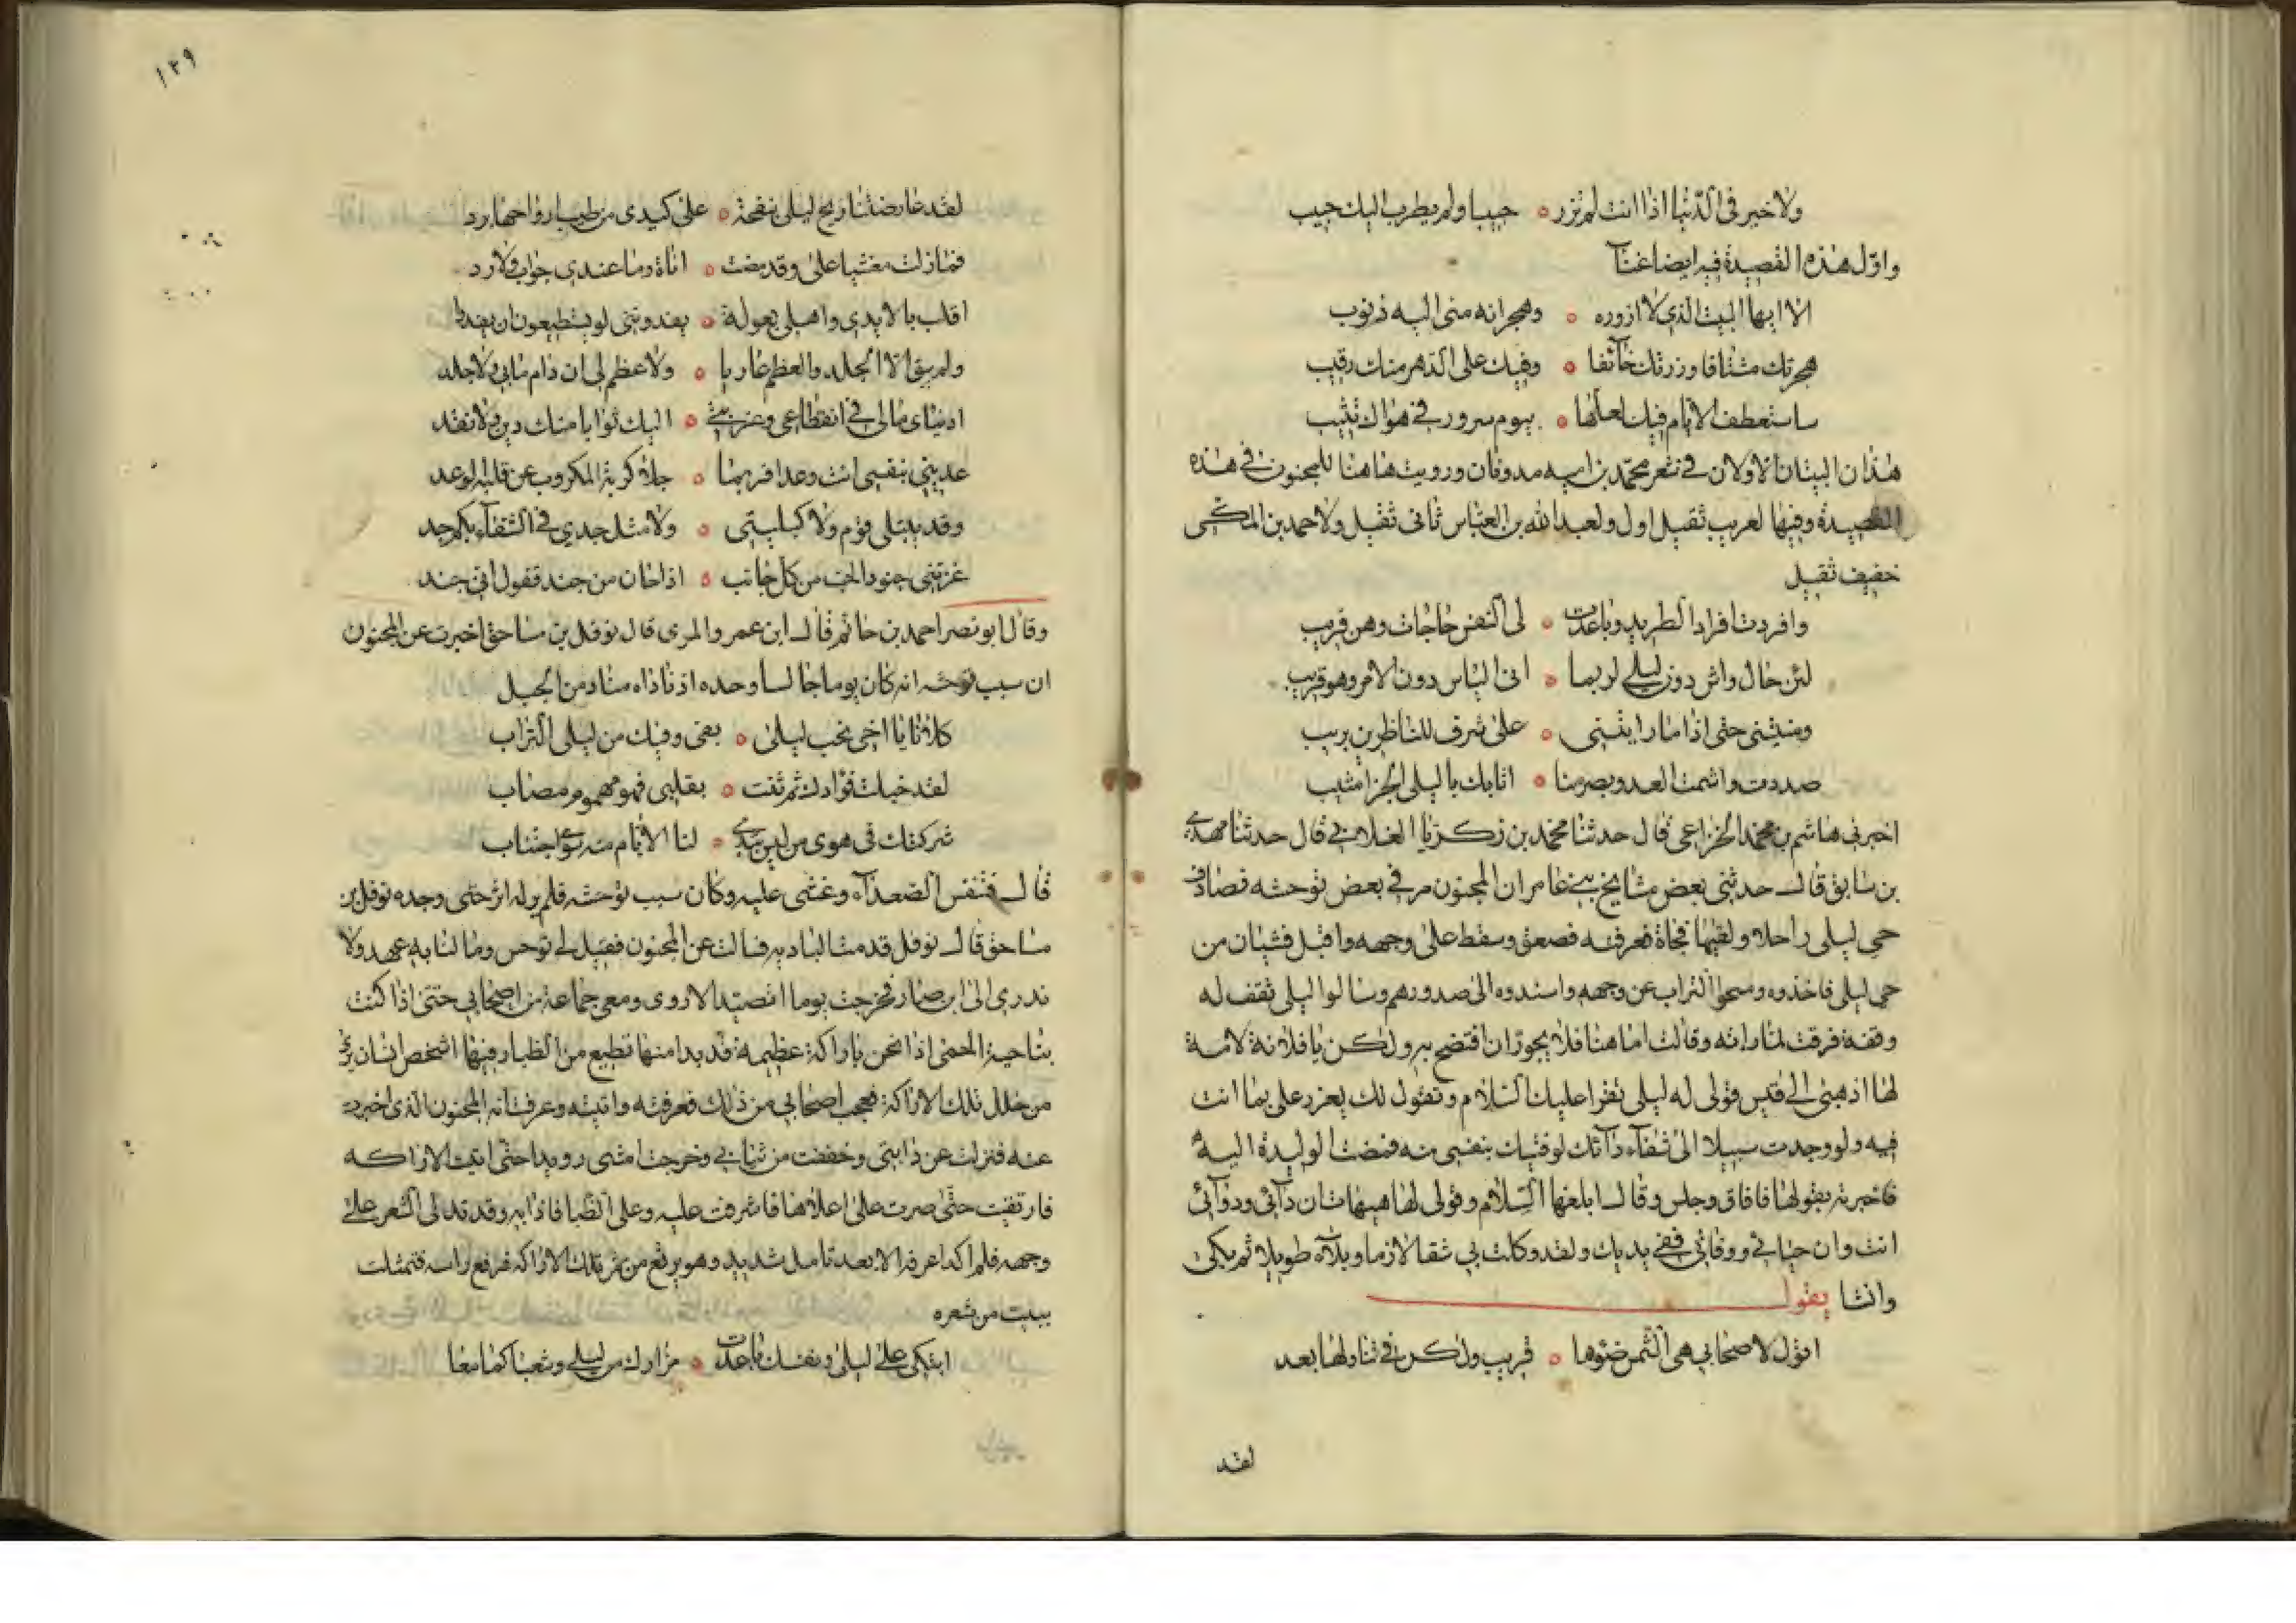 ولا خير في الدنيا اذا انت لم تزر ه حبيبا ولم يطرب اليك حبيب
واول هذه القصيدة فيه ايضا غنآ
الا ايها البيت الذي لا ازوره ه وهجرانه مني اليه ذنوب
هجرتك مشتاقا وزرتك خآئفا ه وفيك على الدهر منك رقيب
ساستعطف الايام فيك لعلها ه بيوم سرور في هواك تثيب
هذان البيتان الاولان في شعر محمد بن اميه مدوقان ورويت هاهنا للمجنون في هذه
القصيدة وفيها لعريب ثقيل اول ولعبد الله بن العباس ثاني ثقيل ولاحمد بن المكي
خفيف ثقيل
وافردت افراد الطريد وباعدت ه لي النفس حاجات وهن قريب
لئن حال واش دون ليلى لربما ه اتى الياس دون الامر وهو قريب
ومنيتني حتى اذا ما رايتني ه على شرف للناظرين يريب
صددت واشمت العدو بصرمنا ه اثابك يا ليلى الجزا مثيب
اخبرني هاشم بن محمد الخزاعي قال حدثنا محمد بن زكريا الغلابي قال حدثنا مهدي
بن سابق قال حدثني بعض مشايخ بني عامر ان المجنون مر في بعض توحشه فصادف
حي ليلى راحلا ولقيها فجاة فعرفته فصعق وسقط على وجهه واقبل فتيان من
حي ليلى فاخذوه ومسحوا التراب عن وجهه واسندوه الى صدورهم وسالوا ليلى تقف له
وقفة فرقت لما راته وقالت اما هنا فلا يجوز ان افتضح به ولكن يا فلانة لامة
لها اذهبي الى قيس فقولي له ليلى تقرا عليك السلام وتقول لك يعزز علي بما انت
فيه ولو وجدت سبيلا الى شفآء دآئك لوقيتك بنفسي منه فمضت الوليدة اليه
فاخبرته بقولها فافاق وجلس وقال ابلغها السلام وقولي لها هيهات ان دآئي ودوآئي
انت وان حياتي ووفاتي ففي يديك ولقد وكلت بي شقا لازما وبلآء طويلا ثم بكى
وانشا يقول
اقول لاصحابي هي الشمس ضوها ه قريب ولكن في تناولها بعد
لقد
١٣٩
لقد عارضتنا ريح ليلى بنفحة ه على كبدي من طيب ارواحها برد
فمازلت مغشيا على وقد مضت ه اناة وما عندي جواب ولا رد
اقلب بالايدي واهلي بعولة ه يفدونني لو يستطيعون ان يفدوا
ولم يبق الا الجلد والعظم عاريا ه ولا عظم لي ان دام مابي ولا جلد
ادنياي مالي في انقطاعي وغربتي ه اليك ثوابا منك دين ولا نقد
عديني بنفسي انت وعدا فربما ه جلا كربة المكروب عن قلبه الوعد
وقد يبتلى قوم ولا كبليتي ه ولا مثل جدي في الشقآء بكم جد
غزتني جنود الحب من كل جانب ه اذا حان من جند قفول اتى جند
وقال ابو نصر احمد بن حاتم قال ابن عمر والمري قال نوفل بن مساحق اخبرت عن المجنون
ان سبب توحشه انه كان يوما جالسا وحده اذ ناداه مناد من الجبل
كلانا يا اخي بحب ليلى ه بفي وفيك من ليلى التراب
لقد خبلت فؤادك ثم ثنت ه بقلبي فهو مهموم مصاب
شركتك في هوى من ليس تبدي ه لنا الايام منه سوى اجتناب
قال فتنفس الصعدآء وغشى عليه وكان سبب توحشه فلم ير له اثر حتى وجده نوفل بن
مساحق قال نوفل قدمت البادية فسالت عن المجنون فقيل لي توحش ومالنا به عهد ولا
ندري الى اين صار فخرجت يوما اتصيد الاروى ومعي جماعة من اصحابي حتى اذا كنت
بناحية الحمى اذا نحن باراكة عظيمة قد بدا منها قطيع من الظباء فيها شخص انسان يرى
من خلل تلك الاراكة فعجب اصحابي من ذلك فعرفته واتيته وعرفت انه المجنون الذي اخبرت
عنه فنزلت عن دابتي وخففت من ثيابي وخرجت امشي رويدا حتى اتيت الاراكه
فارتقيت حتى صرت على اعلاها فاشرفت عليه وعلى الظبا فاذا به وقد تدلى الشعر على
وجهه فلم اكد اعرفه الا بعد تامل شديد وهو يرتع من ثمر تلك الاراكة فرفع راسه فتمثلت
ببيت من شعره
اتبكي على ليلى ونفسك باعدت ه مزارك من ليلى وشعباكما معا